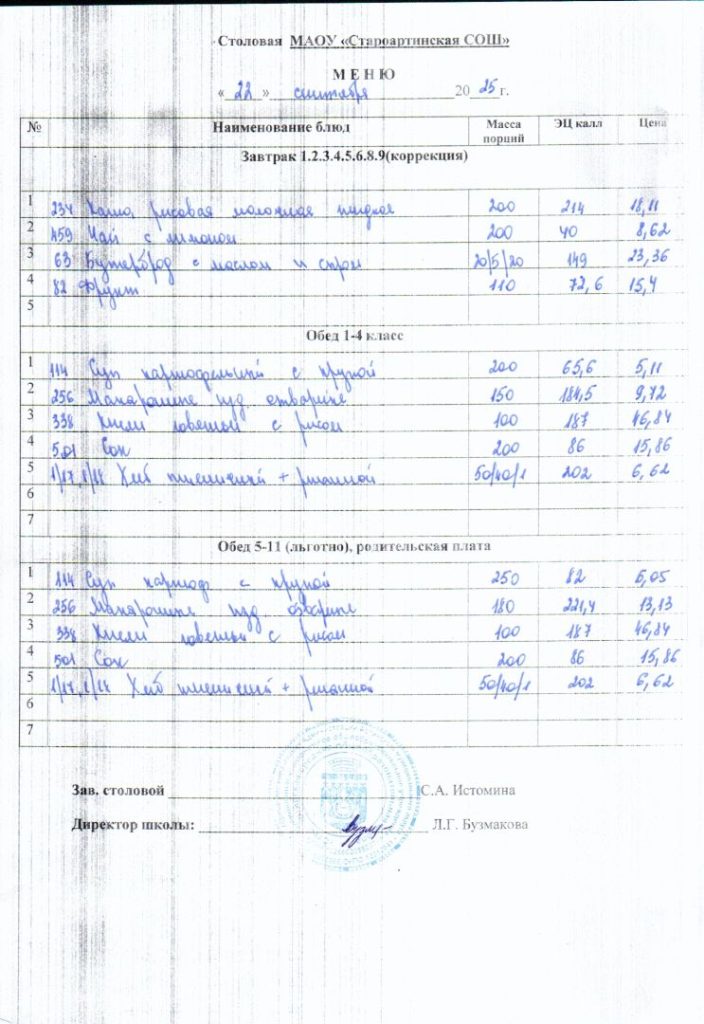 Столовая МАОУ «Староартинская СОШ»
М Е Н Ю
« 22 » сентября 20 25 г.
№ Наименование блюд Масса порций ЭЦ калл Цена
Завтрак 1.2.3.4.5.6.8.9(коррекция)
1 234 Каша рисовая молочная жидкая 200 214 18,11
2 459 Чай с лимоном 200 40 8,62
3 63 Бутерброд с маслом и сыром 20/5/20 149 23,36
4 82 Фрукт 110 72,6 15,4
5
Обед 1-4 класс
1 114 Суп картофельный с крупой 200 65,6 5,11
2 256 Макароние изд отварные 150 184,5 9,72
3 338 с рисом 100 187 46,84
4 501 Сок 200 86 15,86
5 Хлеб пшеничный + ржанной 50/40/1 202 6,62
6
7
Обед 5-11 (льготно), родительская плата
1 114 Суп картоф с крупой 250 82 6,05
2 256 Макароние изд отварные 180 221,4 13,13
3 338 с рисом 100 187 46,84
4 501 Сок 200 86 15,86
5 Хлеб пшеничный + ржанной 50/40/1 202 6,62
6
7
Зав. столовой С.А. Истомина
Директор школы: Л.Г. Бузмакова